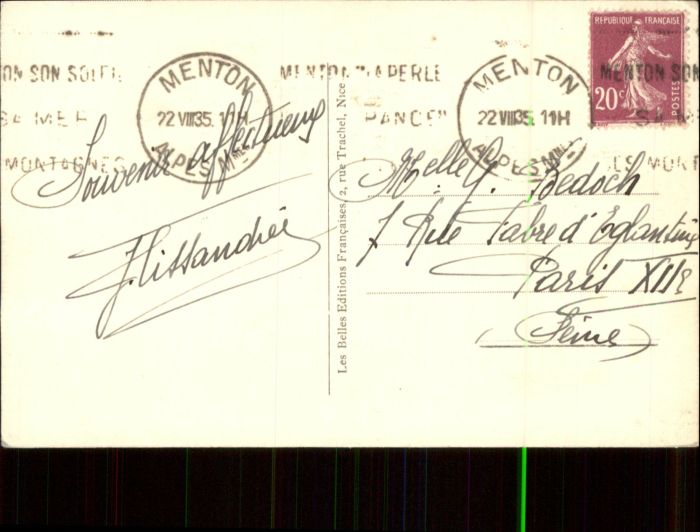 RÉPUBLIQUE FRANÇAISE
20c
POSTES
MENTON
22 VIII 35. 11H
ALPES MMES
MENTON
22 VIII 35. 11H
ALPES MMES
ON SON SOLEIL
SA MER
MONTAGNES
MENTON "LA PERLE
FRANCE"
MENTON SON
SA
SES MONT
Souvenir affectueux
Les Belles Editions Françaises, 2, rue Trachel, Nice
Melle G. Bedoch
7 Rue Fabre d'Eglantine
Paris XIIe
(Seine)